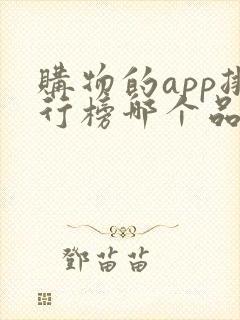 購物的app排
行榜哪个品
鄧苗苗